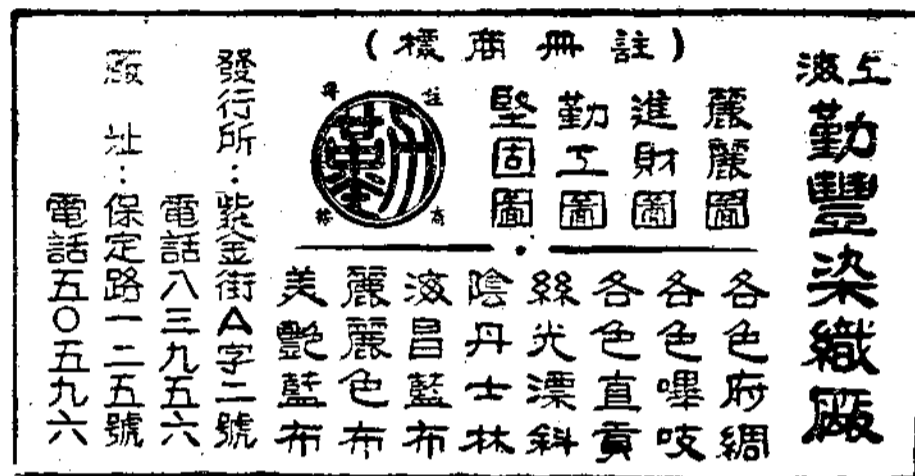 上海
勤豐染織廠
(註冊商標)
麗麗圖
進財圖
勤工圖
堅固圖
註冊商標
勤
各色府綢
各色嗶吱
各色直貢
絲光漂斜
陰丹士林
海昌藍布
麗麗色布
美艷藍布
發行所：紫金街A字二號
電話八三九五六
廠址：保定路一二五號
電話五〇五九六